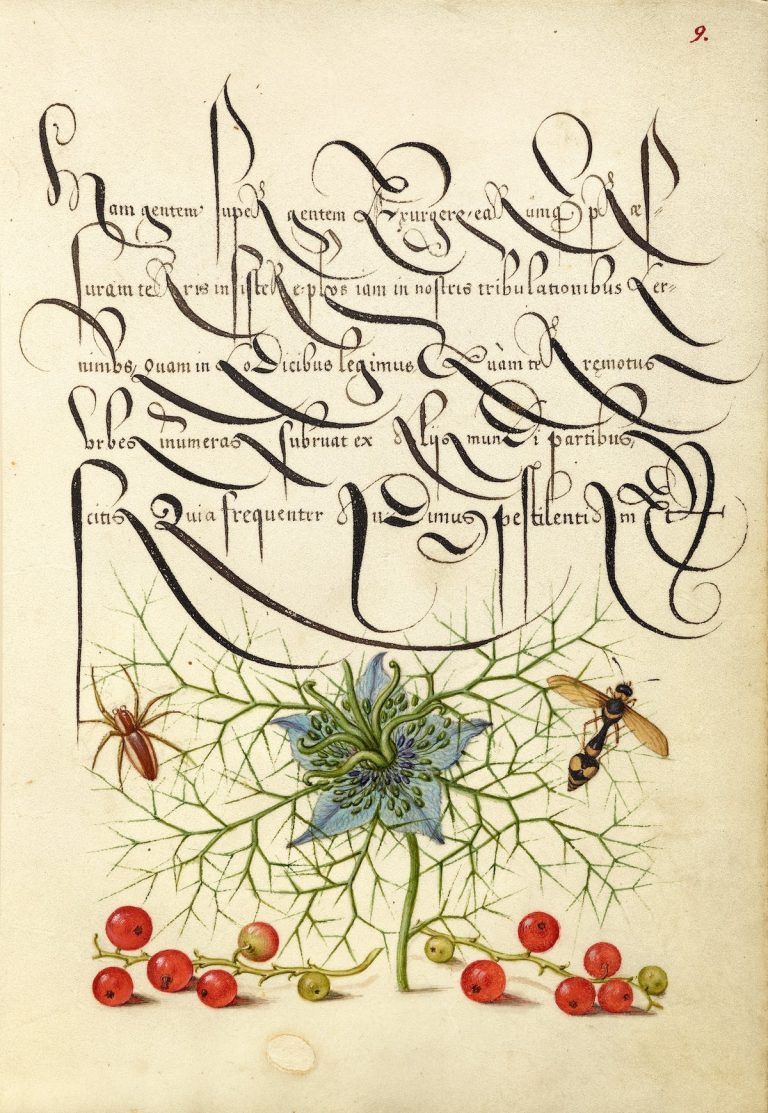 9.
Nam gentem super gentem Exurgere, earumq; præs=
suram terris insistere, plvs iam in nostris tribulationibus Cer=
nimvs, Quam in Codicibus legimus Quàm terręmotus
vrbes inumeras subruat ex alijs mundi partibus,
scitis Quia frequenter Audiuimus pestilentiam Et